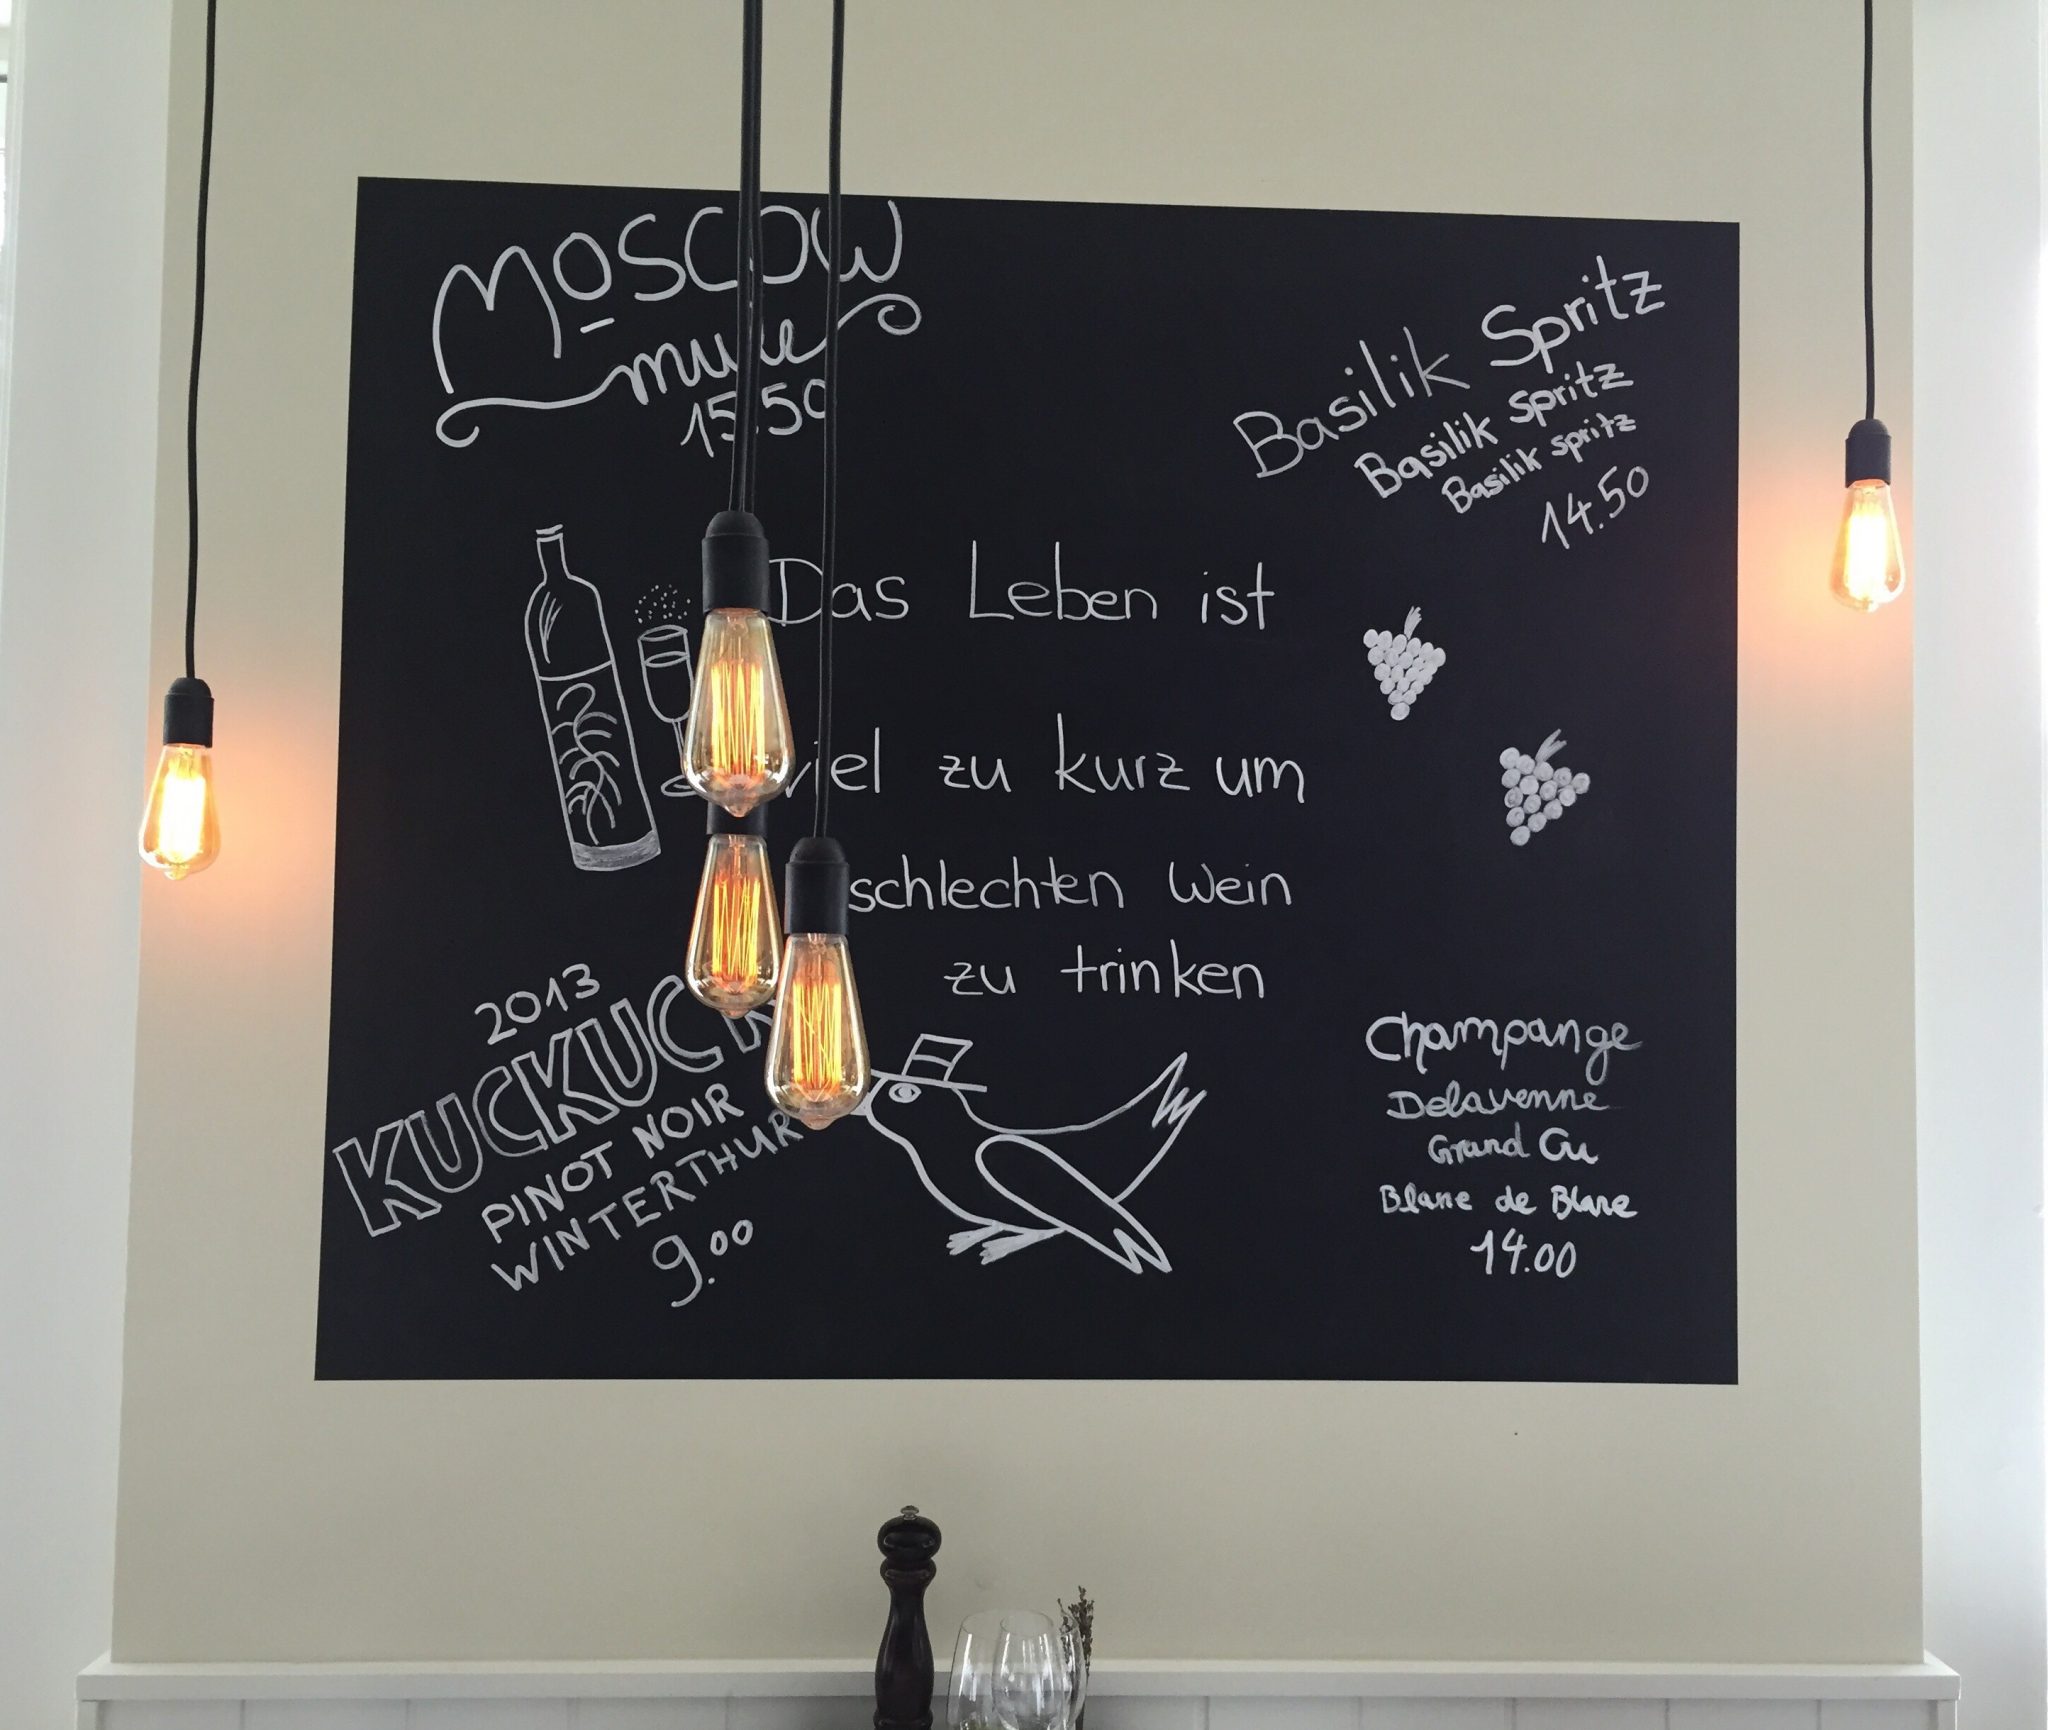 Moscow
mule
15.50
Basilik Spritz
Basilik Spritz
Basilik spritz
14.50
Das Leben ist
viel zu kurz um
schlechten Wein
zu trinken
2013
KUCKUCK
PINOT NOIR
WINTERTHUR
9.00
Champange
Delavenne
Grand Cu
Blanc de Blanc
14.00